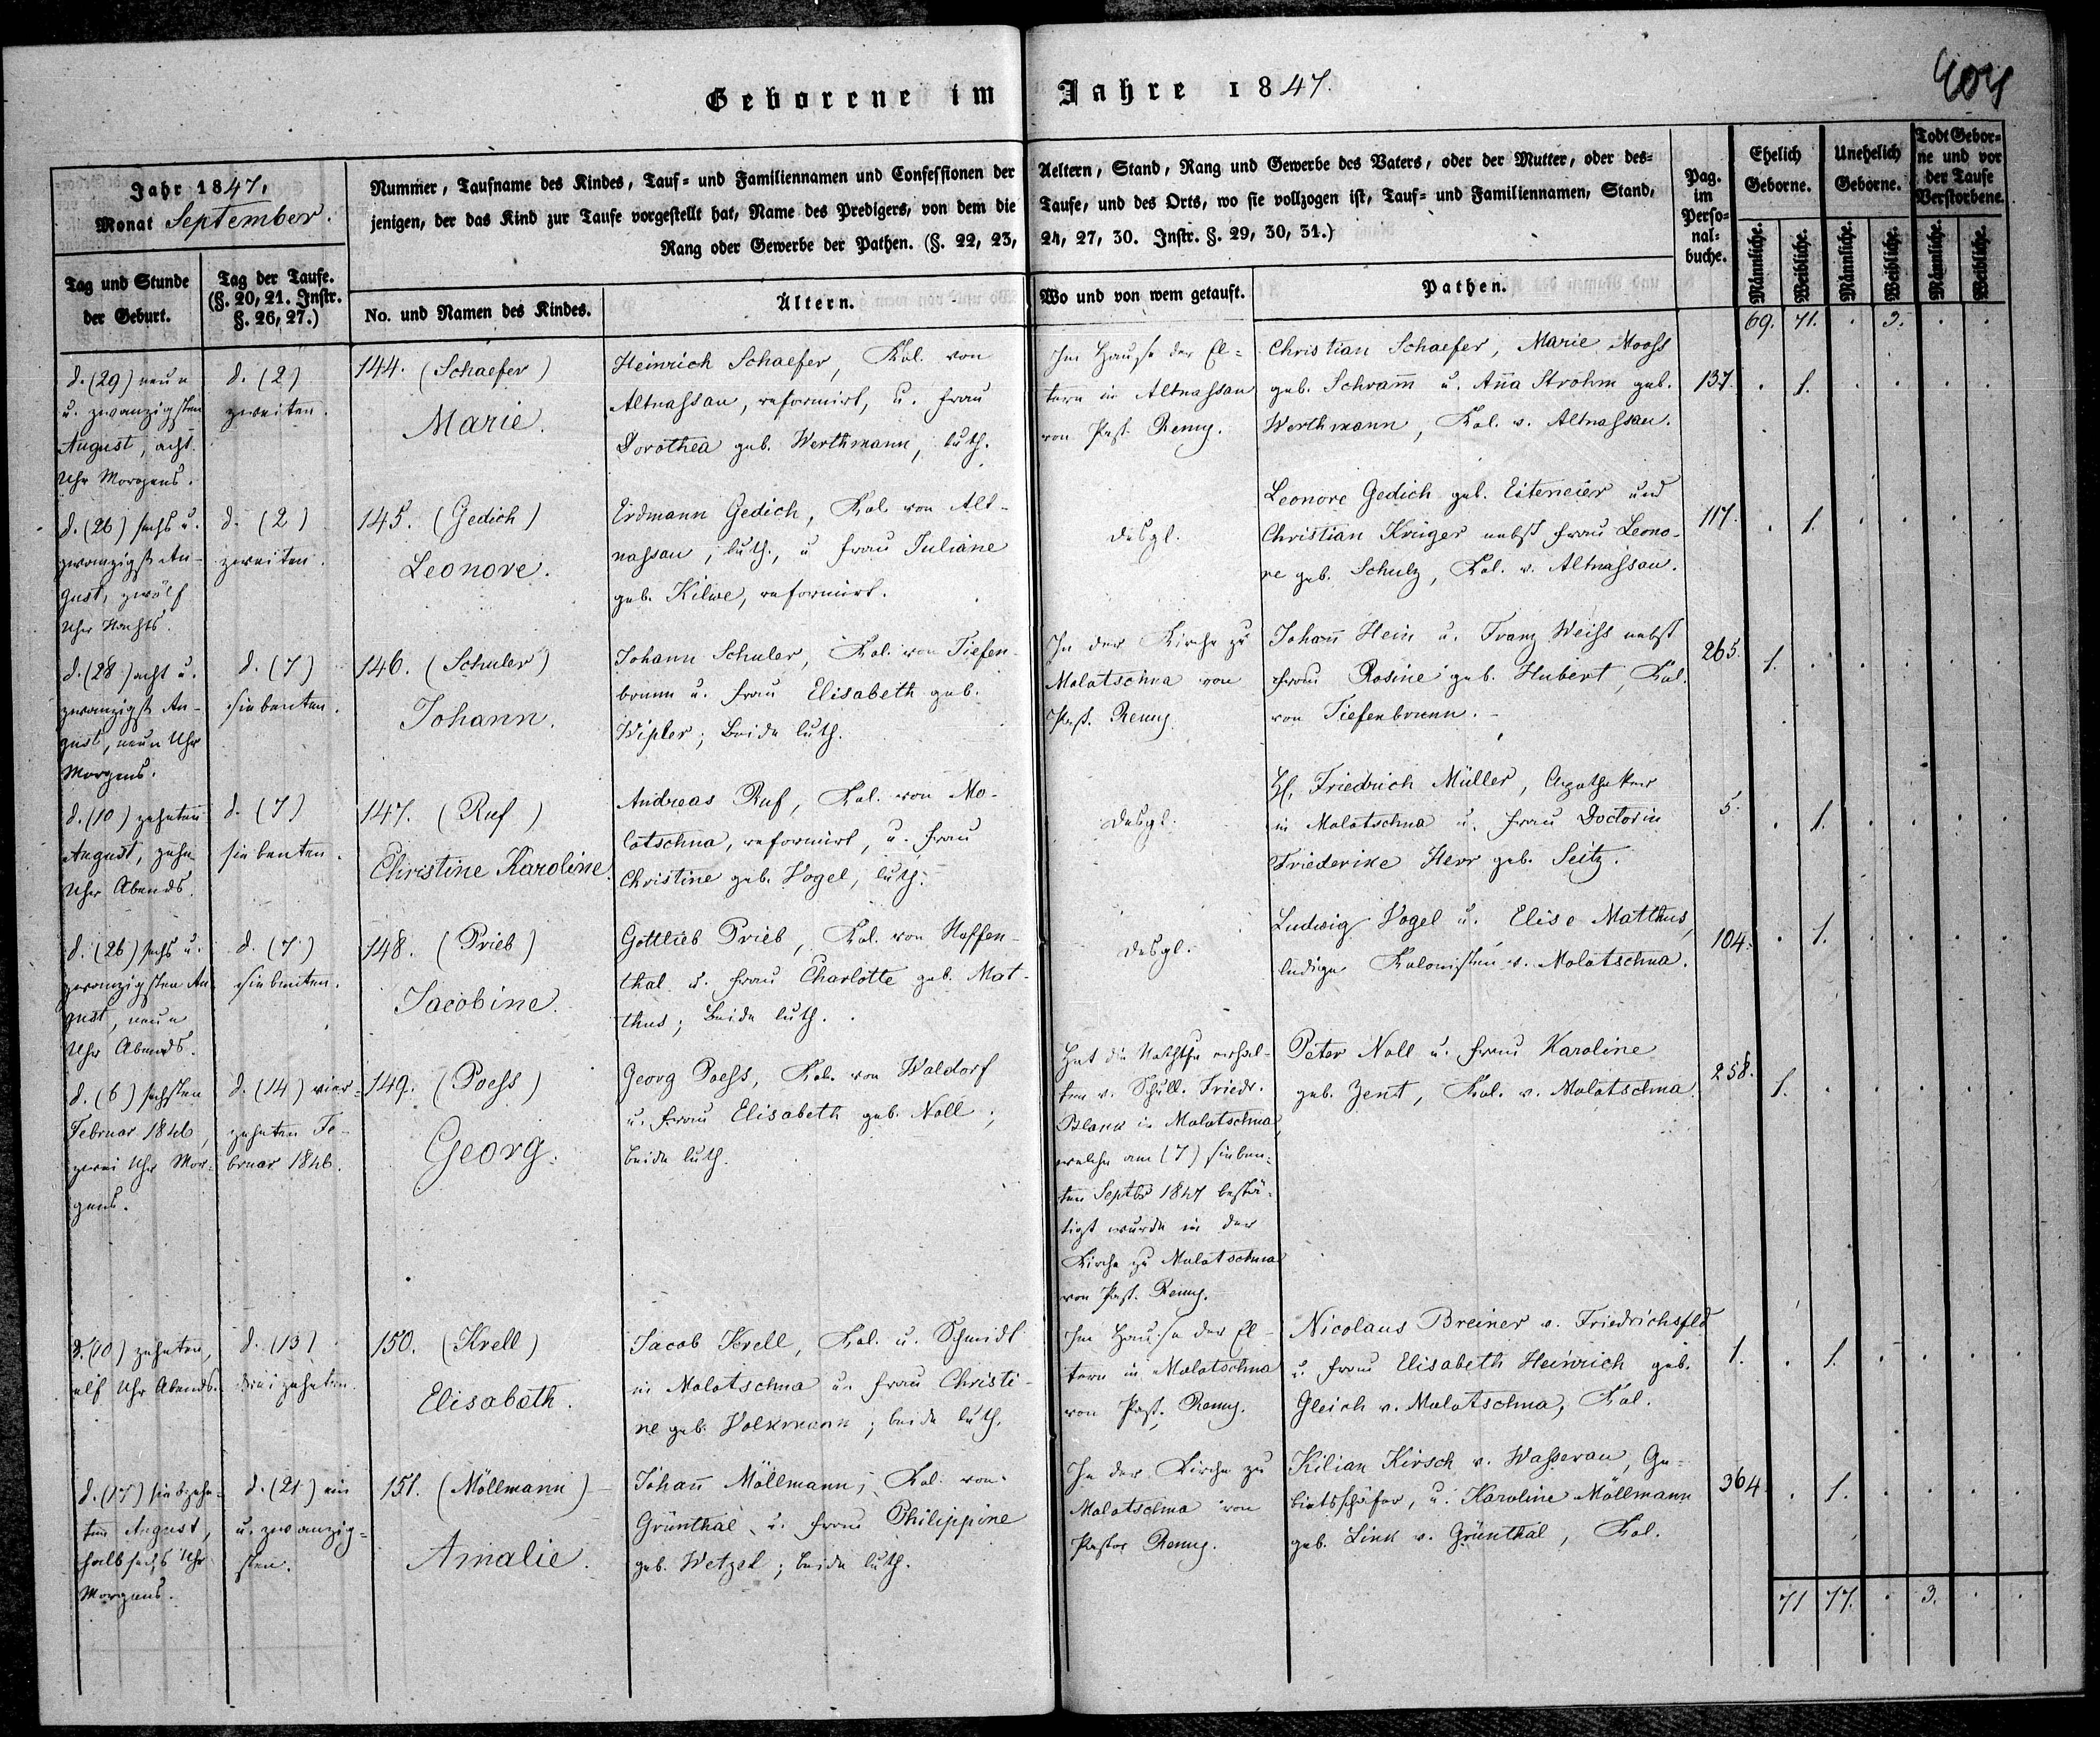 Geborene im Jahre 1847.
Jahr 1847.
Monat September.
Nummer, Taufname des Kindes, Tauf- und Familiennamen und Confessionen der Aeltern, Stand, Rang und Gewerbe des Vaters, oder der Mutter, oder des-
jenigen, der das Kind zur Taufe vorgestellt hat, Name des Predigers, von dem die Taufe, und des Orts, wo sie vollzogen ist, Tauf- und Familiennamen, Stand,
Rang oder Gewerbe der Pathen. (§. 22, 23, 24, 27, 30. Instr. §. 29, 30, 31.)
Pag.
im
Perso-
nal-
buche.
Ehelich
Geborne.
Unehelich
Geborne.
Todt Gebor-
ne und vor
der Taufe
Verstorbene.
Männliche.
Weibliche.
Männliche.
Weibliche.
Männliche.
Weibliche.
Tag und Stunde
der Geburt.
Tag der Taufe.
(§. 20, 21. Instr.
§. 26, 27.)
No. und Namen des Kindes.
Ältern.
Wo und von wem getauft.
Pathen.
69. 71. . 3. . .
d. (29) neun
u. zwanzigsten
August, acht
Uhr Morgens.
d. (2)
zweiten.
144. (Schaefer)
Marie.
Heinrich Schaefer, Kol. von
Altnassau, reformirt, u. Frau
Dorothea geb. Werthmann, luth.
Im Hause der El-
tern in Altnassau
von Past. Remy.
Christian Schaefer, Marie Mooss
geb. Schram̄ u. An̄a Strohm geb.
Werthmann, Kol. v. Altnassau.
137. . 1. . . . .
d. (26) sechs u.
zwanzigst. Au-
gust, zwölf
Uhr Nachts.
d. (2)
zweiten.
145. (Gedich)
Leonore.
Erdmann Gedich, Kol. von Alt-
nassau, luth., u. Frau Juliane
geb. Kilwe, reformirt.
desgl.
Leonore Gedich geb. Eiteneier und
Christian Krüger nebst Frau Leono-
re geb. Schulz, Kol. v. Altnassau.
117. . 1. . . . .
d. (28) acht u.
zwanzigst. Au-
gust, neun Uhr
Morgens.
d. (7)
siebenten.
146. (Schuler)
Johann.
Johann Schuler, Kol. von Tiefen-
brunn u. Frau Elisabeth geb.
Wipler; beide luth.
In der Kirche zu
Molotschna von
Past. Remy.
Johan̄ Hein u. Franz Weiss nebst
Frau Rosine geb. Hubert, Kol.
von Tiefenbrunn.
265. 1. . . . . .
d. (10) zehnten
August, zehn
Uhr Abends.
d. (7)
siebenten.
147. (Ruf)
Christine Karoline.
Andreas Ruf, Kol. von Mo-
lotschna, reformirt, u. Frau
Christine geb. Vogel, luth.
desgl.
H. Friedrich Müller, Apotheker
in Molotschna u. Frau Doctorin
Friederike Herr geb. Seitz.
5. . 1. . . . .
d. (26) sechs u.
zwanzigsten Au-
gust, neun
Uhr Abends.
d. (7)
siebenten.
148. (Prieb)
Jacobine.
Gottlieb Prieb, Kol. von Hoffen-
thal u. Frau Charlotte geb. Mat-
thus; beide luth.
desgl.
Ludwig Vogel u. Elise Matthus,
ledige Kolonisten v. Molotschna.
104. . 1. . . . .
d. (6) sechsten
Februar 1846,
zwei Uhr Mor-
gens.
d. (14) vier-
zehnten Fe-
bruar 1846.
149. (Poess)
Georg.
Georg Poess, Kol. von Waldorf
u. Frau Elisabeth geb. Noll;
beide luth.
Hat die Nothtfe erhal-
ten v. Schull. Friedr.
Blank in Molotschna,
welche am (7) sieben-
ten Septbr 1847 bestä-
tigt wurde in der
Kirche zu Molotschna
von Past. Remy.
Peter Noll u. Frau Karoline
geb. Zent, Kol. v. Molotschna.
258. 1. . . . . .
d. (10) zehnten,
elf Uhr Abends.
d. (13)
dreizehnten.
150. (Krell)
Elisabeth.
Jacob Krell, Kol. u. Schmidt
in Molotschna u. Frau Christi-
ne geb. Volkmann; beide luth.
Im Hause der El-
tern in Molotschna
von Past. Remy.
Nicolaus Breiner v. Friedrichsfeld
u. Frau Elisabeth Heinrich geb.
Gleich v. Molotschna, Kol.
1. . 1. . . . .
d. (17) siebzehn-
ten August,
halbsechs Uhr
Morgens.
d. (21) ein
u. zwanzig-
sten.
151. (Möllmann)
Amalie.
Johan̄ Möllmann, Kol. von
Grünthal u. Frau Philippine
geb. Wetzel; beide luth.
In der Kirche zu
Molotschna von
Pastor Remy.
Kilian Kirsch v. Wasserau, Ge-
bietsschäfer, u. Karoline Möllmann
geb. Link v. Grünthal, Kol.
364. . 1. . . . .
71 77. . 3. . .